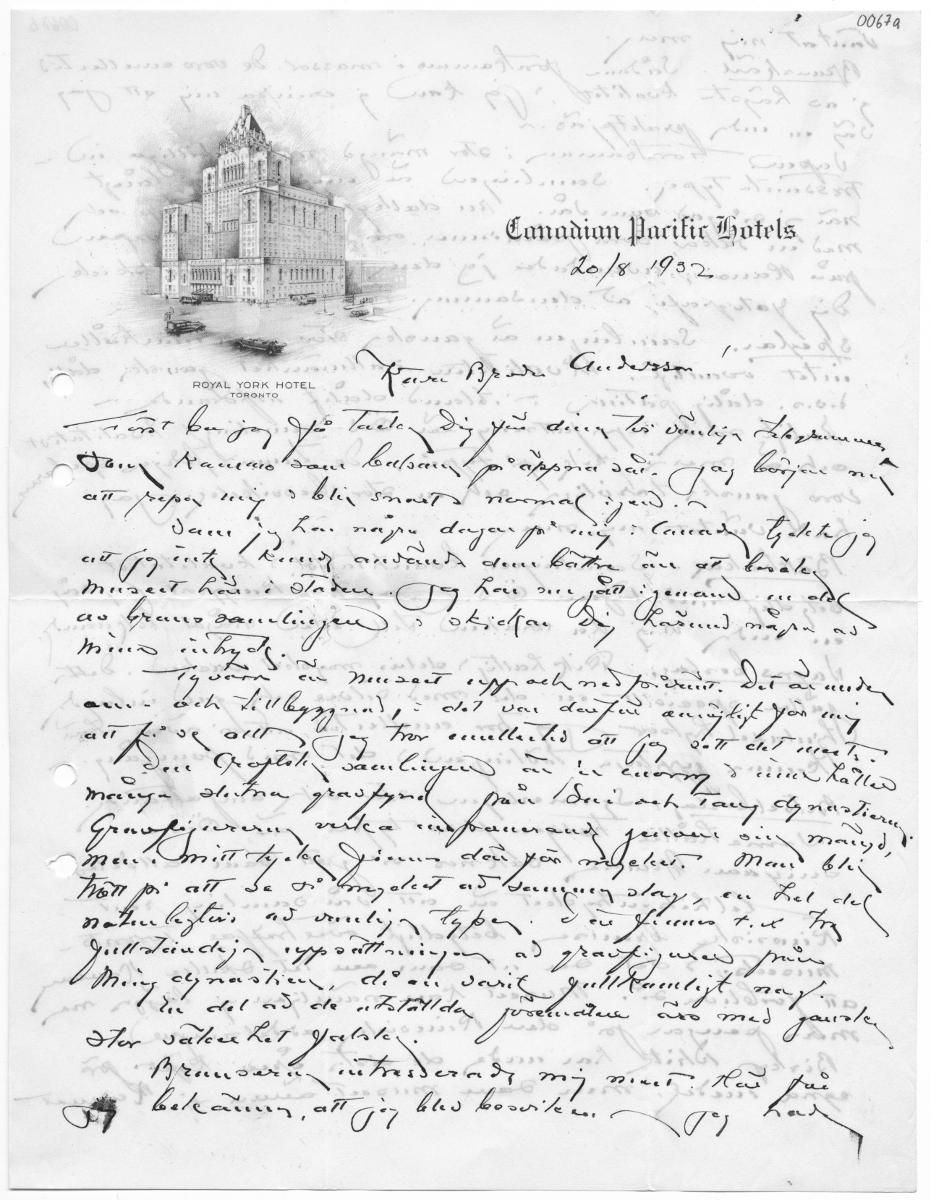 0067a
Canadian Pacific Hotels
20/8 1932
ROYAL YORK HOTEL
TORONTO
Käre Broder Andersson!
Först ber jag få tacka Dig för dina två vänliga telegrammer
som kommo som balsam på öppna sår. Jag börjar nu
att repa mig & blir snart normal igen.
Som jag har några dagar på mig i Canada tyckte jag
att jag inte kunde använda dem bättre än att besöka
museet här i staden. Jag har nu gått igenom en del
av bronssamlingen & skickar Dig härmed några av
mina intryck.
Tyvärr är museet upp och ned på vänt. Det är under
om- och tillbyggnad, & det var därför omöjligt för mig
att få se allt, jag tror emellertid att jag sett det mesta.
Den Croftska samlingen är enorm & innehåller
många slutna gravfynd från Sui och Tang dynastierna.
Gravfigurerna verka imponerande genom sin mängd,
men i mitt tycke finns där för mycket. Man blir
trött på att se så mycket av samma slag, en hel del
naturligtvis av vanliga typer. Där finnes t.ex tre
fullständiga uppsättningar av gravfigurer från
Ming dynastien, då en varit fullkomligt nog.
En del av de utställda föremålen äro med ganska
stor säkerhet falska.
Bronserna intresserade mig mest. Här får
jag bekänna, att jag blev besviken — jag hade